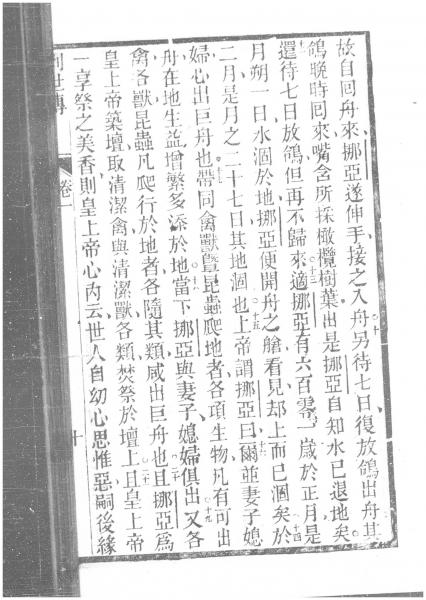 故自囘舟來、挪亞遂伸手、接之入舟另待七日、復放鴿出舟其
鴿晚時囘來嘴含所採橄欖樹葉出是挪亞自知水已退地矣
還待七日放鴿但再不歸來適挪亞有六百零一歲於正月是
月朔一日水涸於地挪亞便開舟之艙看見却上面已涸矣於
二月是月之二十七日其地涸也上帝謂挪亞曰爾並妻子媳
婦心出巨舟也帶同禽獸暨昆蟲爬地者各項生物凡有可出
舟在地生益增繁多添於地當下挪亞與妻子媳婦俱出又各
禽各獸昆蟲凡爬行於地者各隨其類咸出巨舟也且挪亞爲
皇上帝築壇取清潔禽與清潔獸各類焚祭於壇上且皇上帝
一享祭之美香則皇上帝心內云世人自幼心思惟惡嗣後緣
世傳
卷一
十